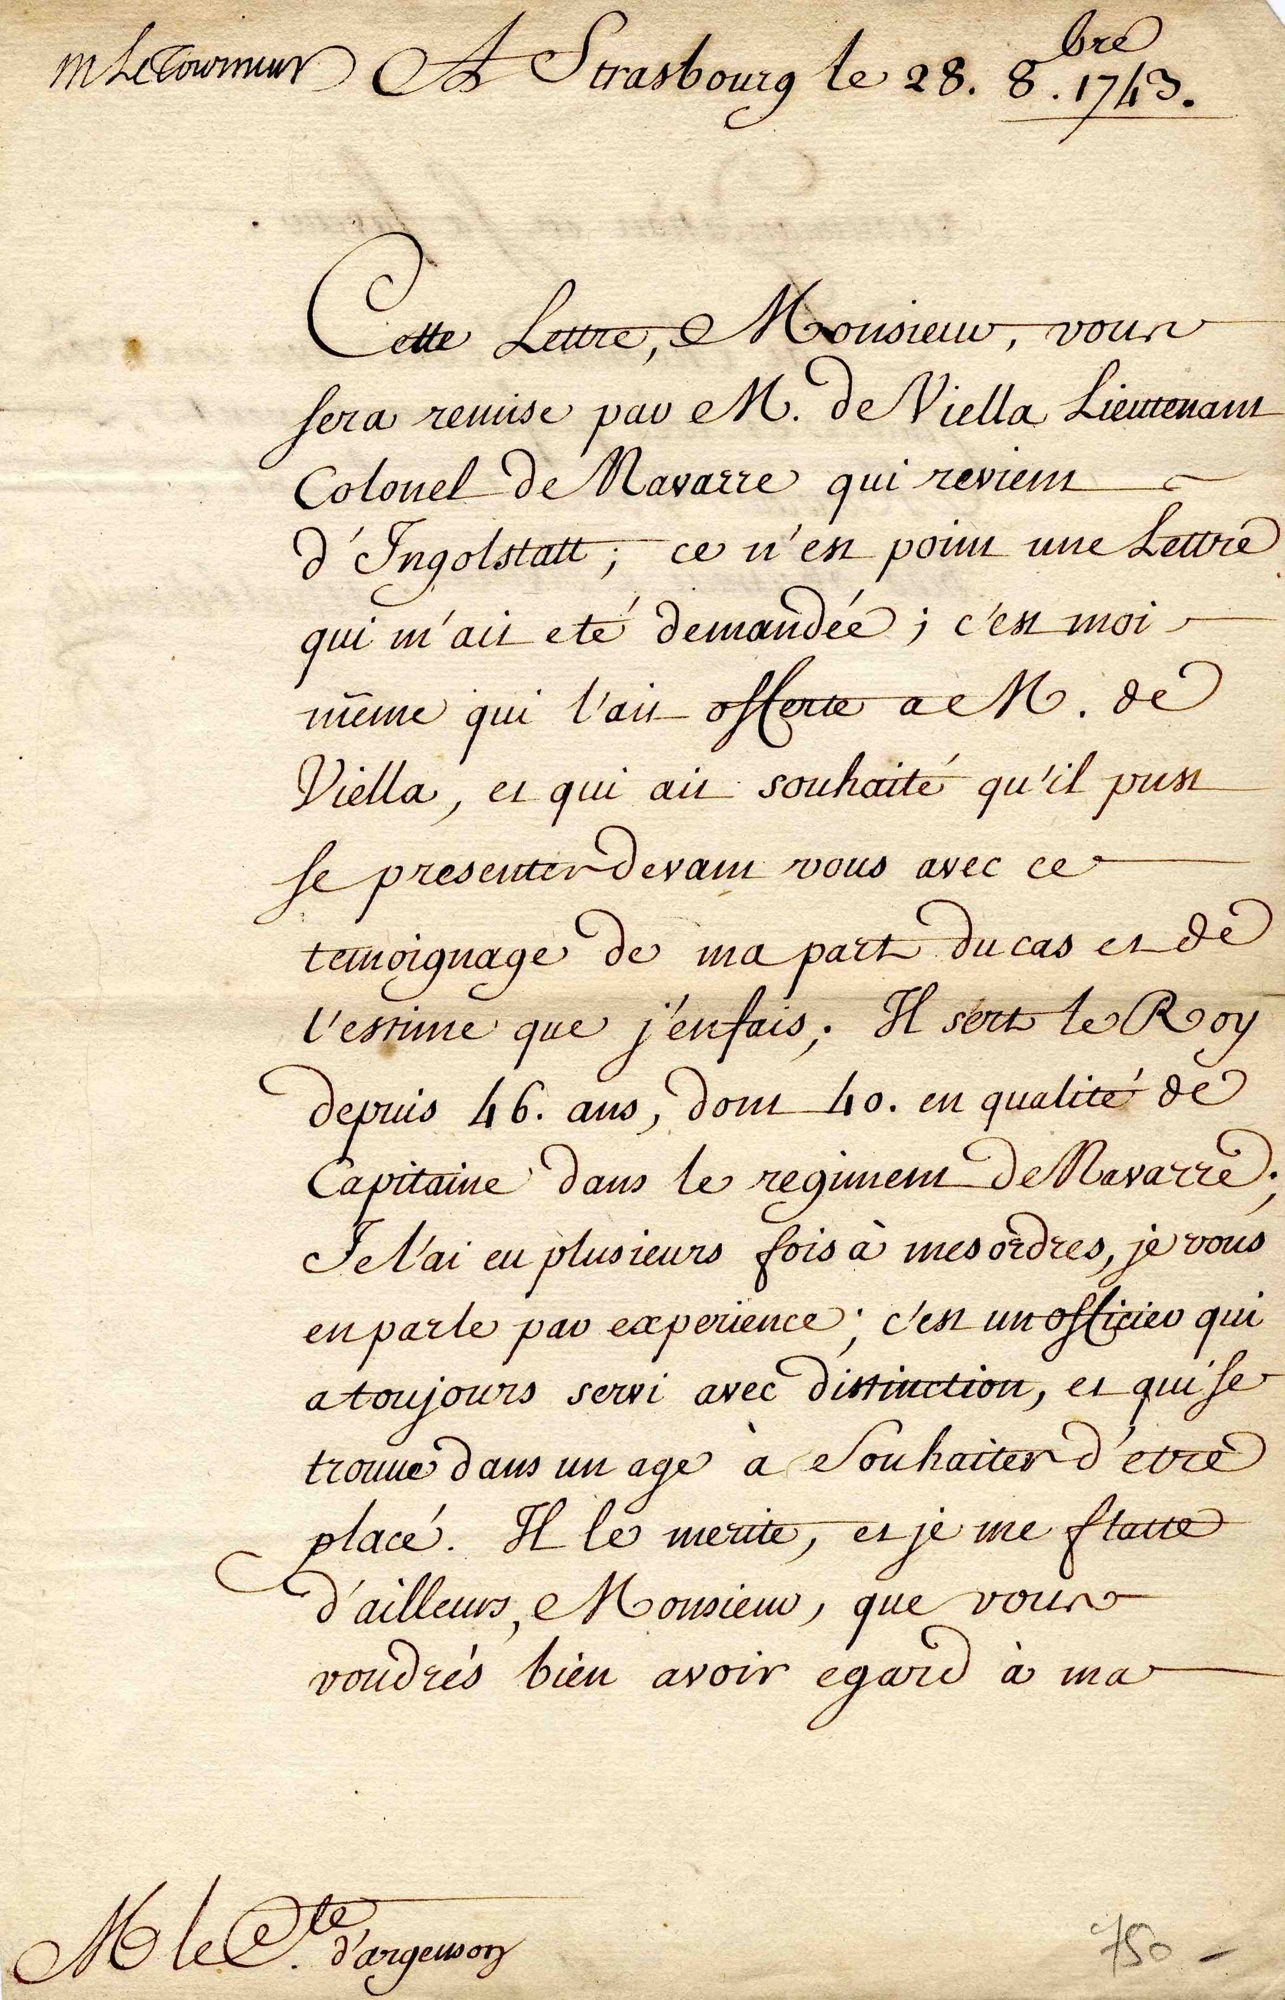 M Le Tourneur A Strasbourg le 28. 8.bre 1743.
Cette Lettre, Monsieur, vous
sera remise par M. de Viella Lieutenant
Colonel de Navarre qui revient
d'Ingolstatt; ce n'est point une Lettre
qui m'ait eté demandée; c'est moi
même qui l'ait offerte a M. de
Viella, et qui ait souhaité qu'il pust
se presenter devant vous avec ce
temoignage de ma part du cas et de
l'estime que j'en fais; Il sert le Roy
depuis 46. ans, dont 40. en qualité de
Capitaine dans le regiment de Navarre;
Je l'ai eu plusieurs fois à mes ordres, je vous
en parle par experience; c'est un officier qui
a toujours servi avec distinction, et qui se
trouve dans un age à souhaiter d'etre
placé. Il le merite, et je me flatte
d'ailleurs, Monsieur, que vous
voudrés bien avoir egard à ma
M. le Cte. d'argenson
750 -